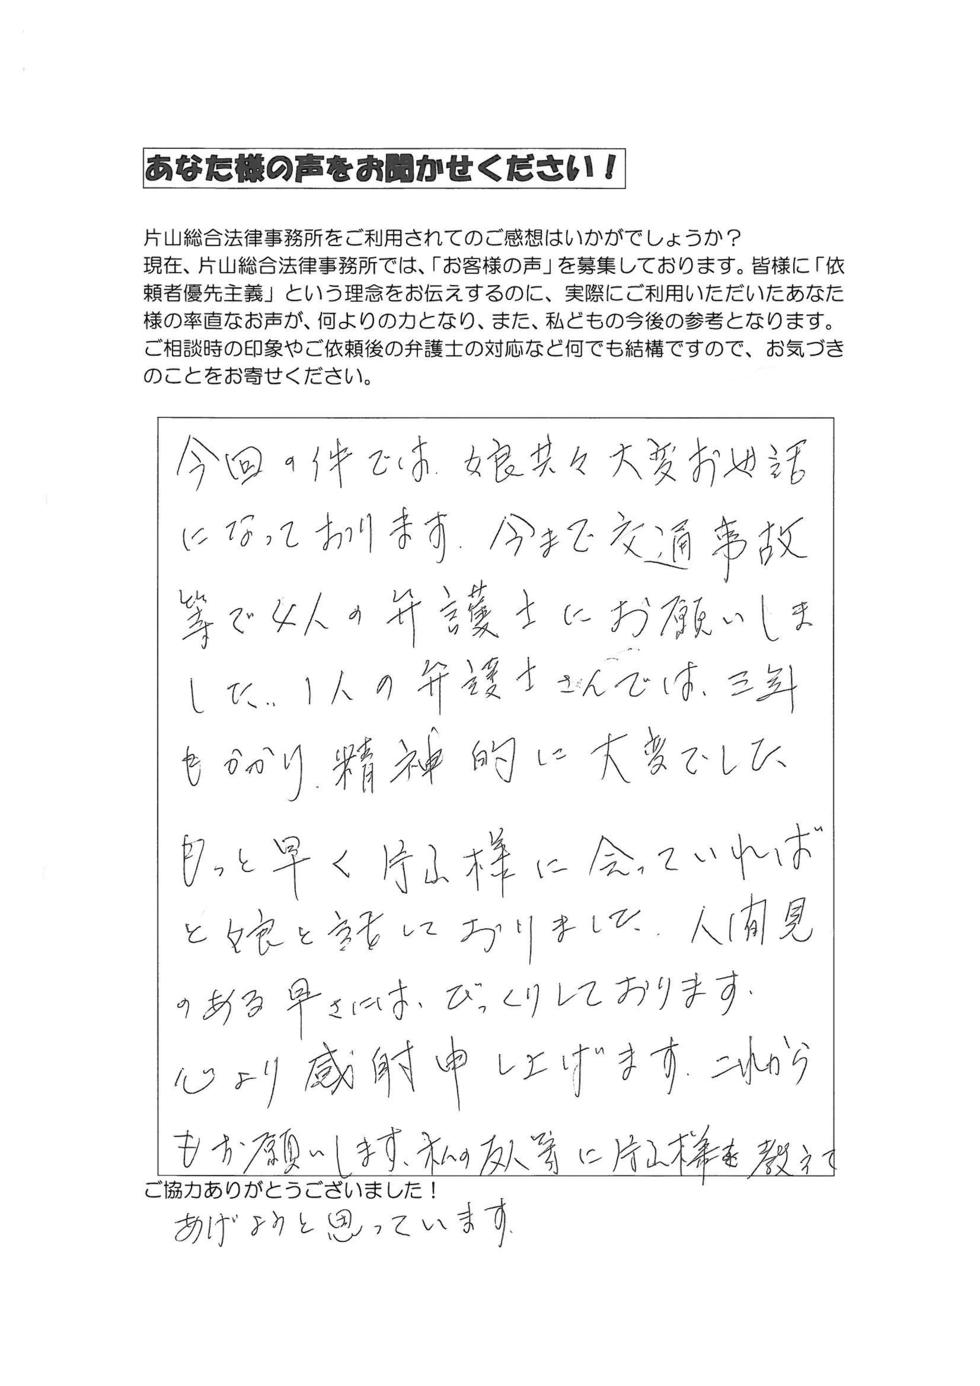 あなた様の声をお聞かせください！
片山総合法律事務所をご利用されてのご感想はいかがでしょうか？
現在、片山総合法律事務所では、「お客様の声」を募集しております。皆様に「依
頼者優先主義」という理念をお伝えするのに、実際にご利用いただいたあなた
様の率直なお声が、何よりの力となり、また、私どもの今後の参考となります。
ご相談時の印象やご依頼後の弁護士の対応など何でも結構ですので、お気づき
のことをお寄せください。
今回の件では、娘共々大変お世話
になっております。今まで交通事故
等で4人の弁護士にお願いしま
した。1人の弁護士さんでは、三年
もかかり、精神的に大変でした
もっと早く片山様に会っていれば
と娘と話しておりました。人間見
のある早さには、びっくりしております。
心より感射申し上げます。これから
もお願いします。私の友人等に片山様を教えて
ご協力ありがとうございました！
あげようと思っています。